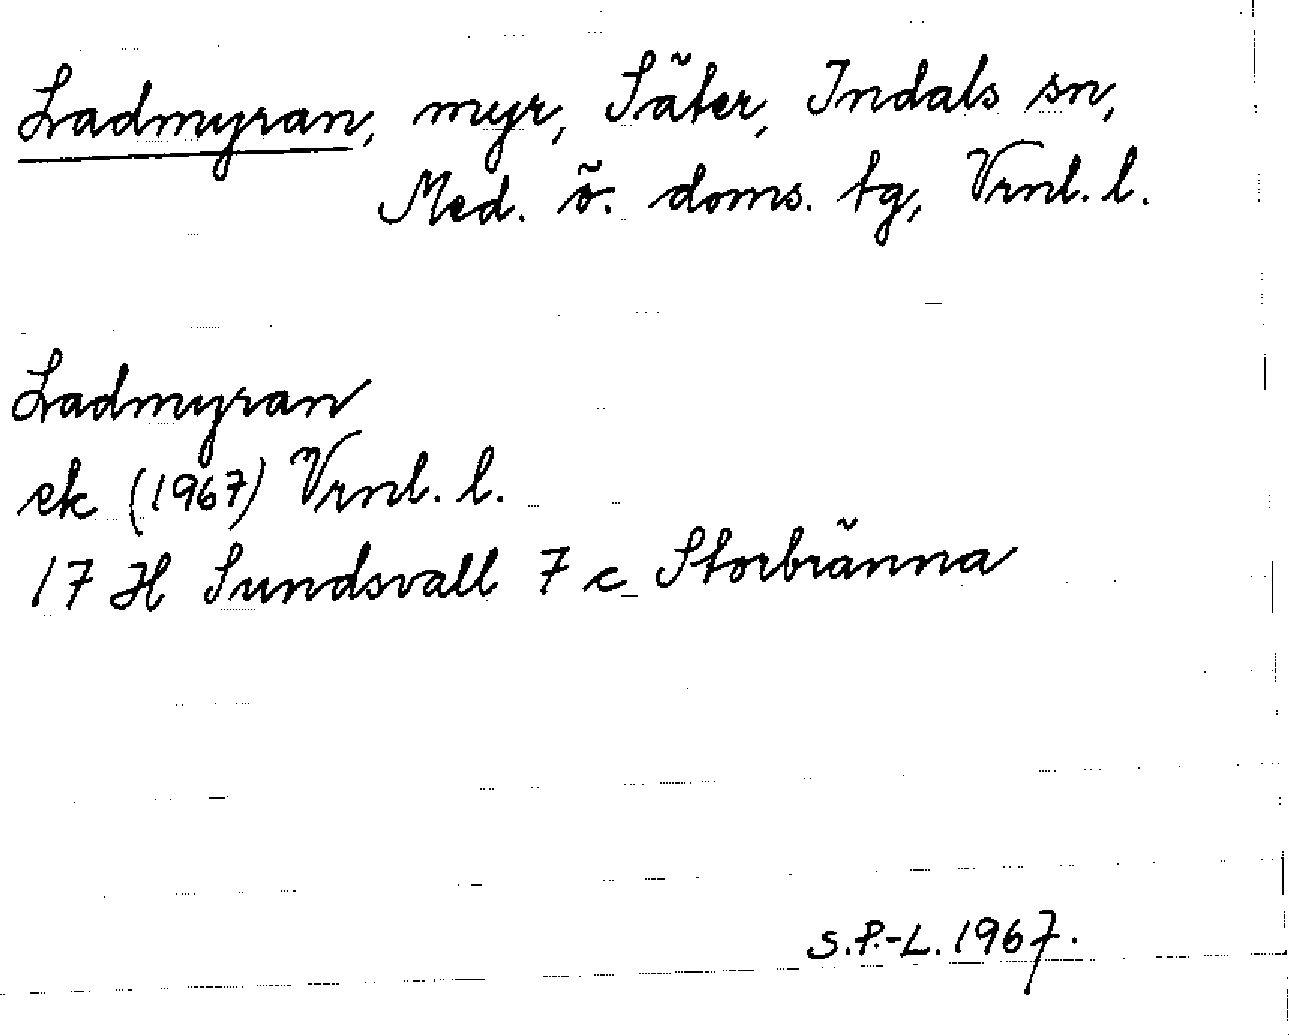 Ladmyran, myr, Säter, Indals sn,
Med. ö. doms. tg, Vrnl. l.
Ladmyran
ek (1967) Vrnl. l.
17 H Sundsvall 7 c Storbränna
S.P.-L. 1967.